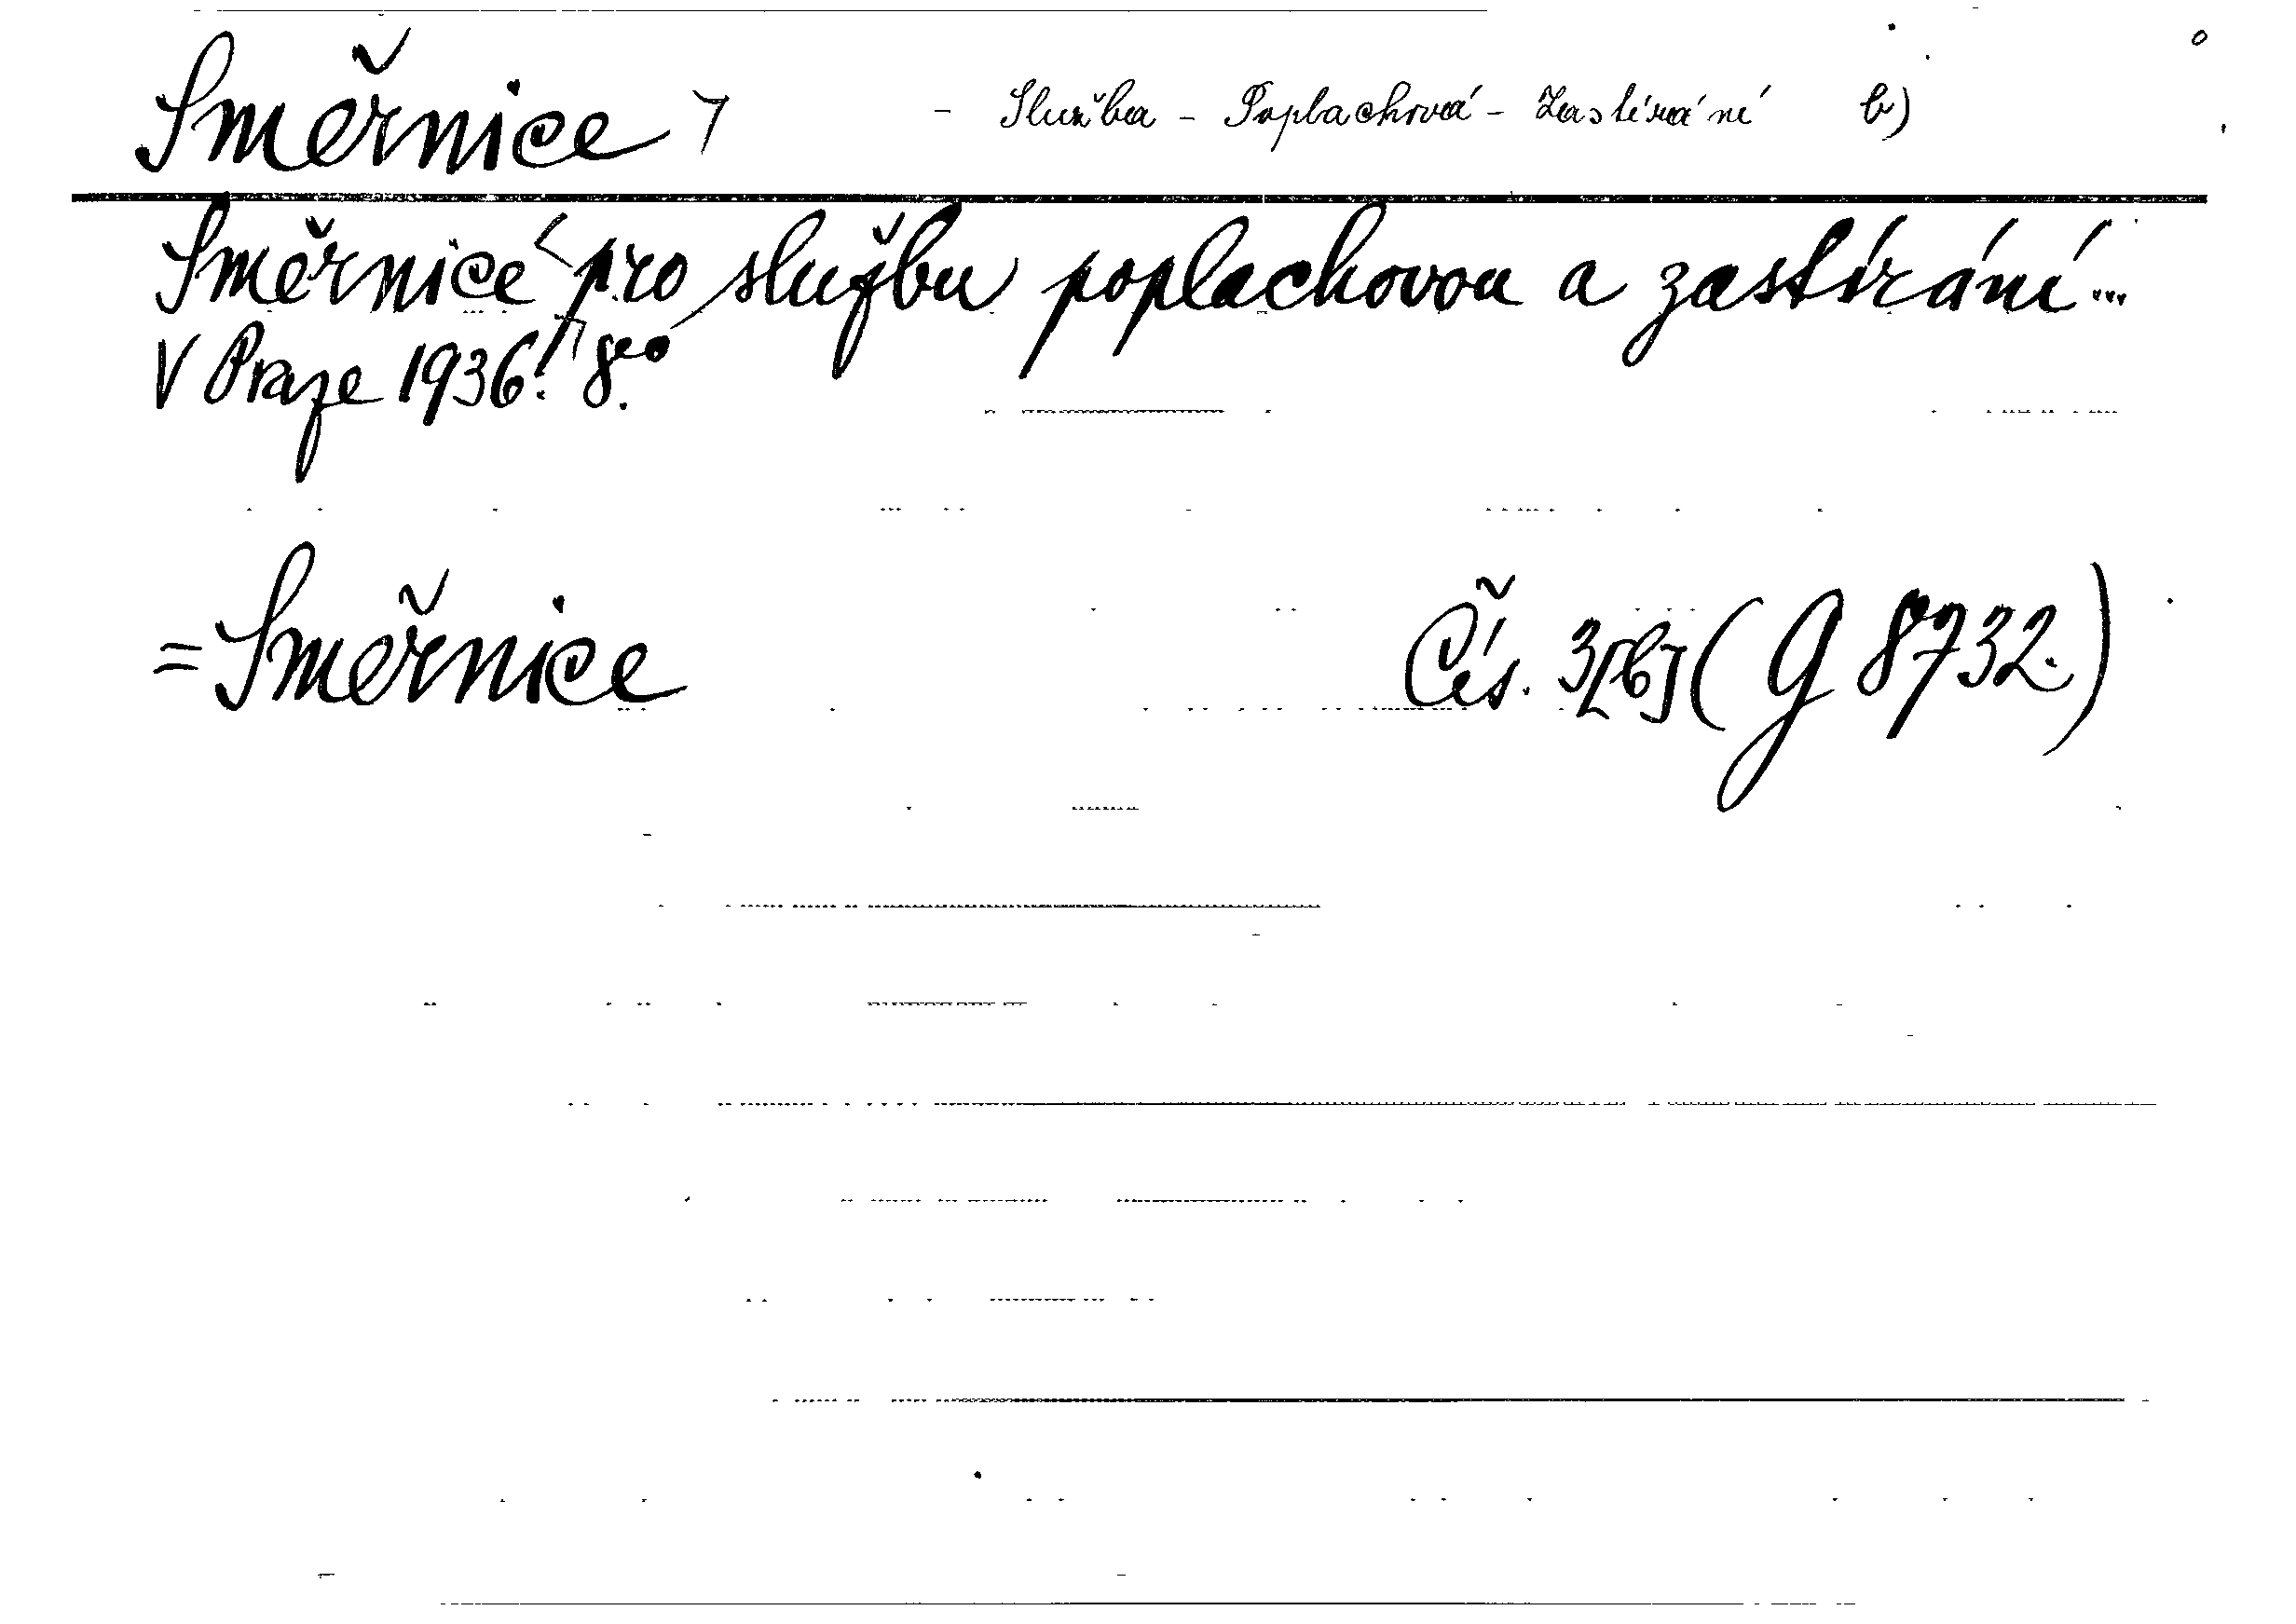 Směrnice - Služba - Poplachová - Zastírání b)
Směrnice pro službu poplachovou a zastírání...
V Praze 1936. 8°
=Směrnice Čís. 3[b] (G 8732.)